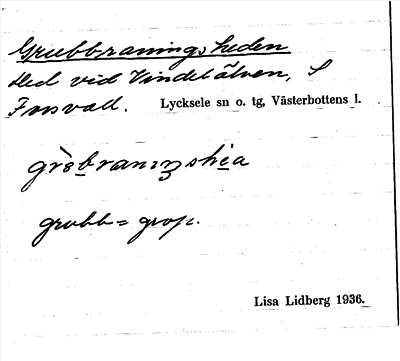 Grubbraningsheden
Hed vid Vindelälven, S
Lycksele sn o. tg, Västerbottens l.
grubb = grop.
Lisa Lidberg 1936.